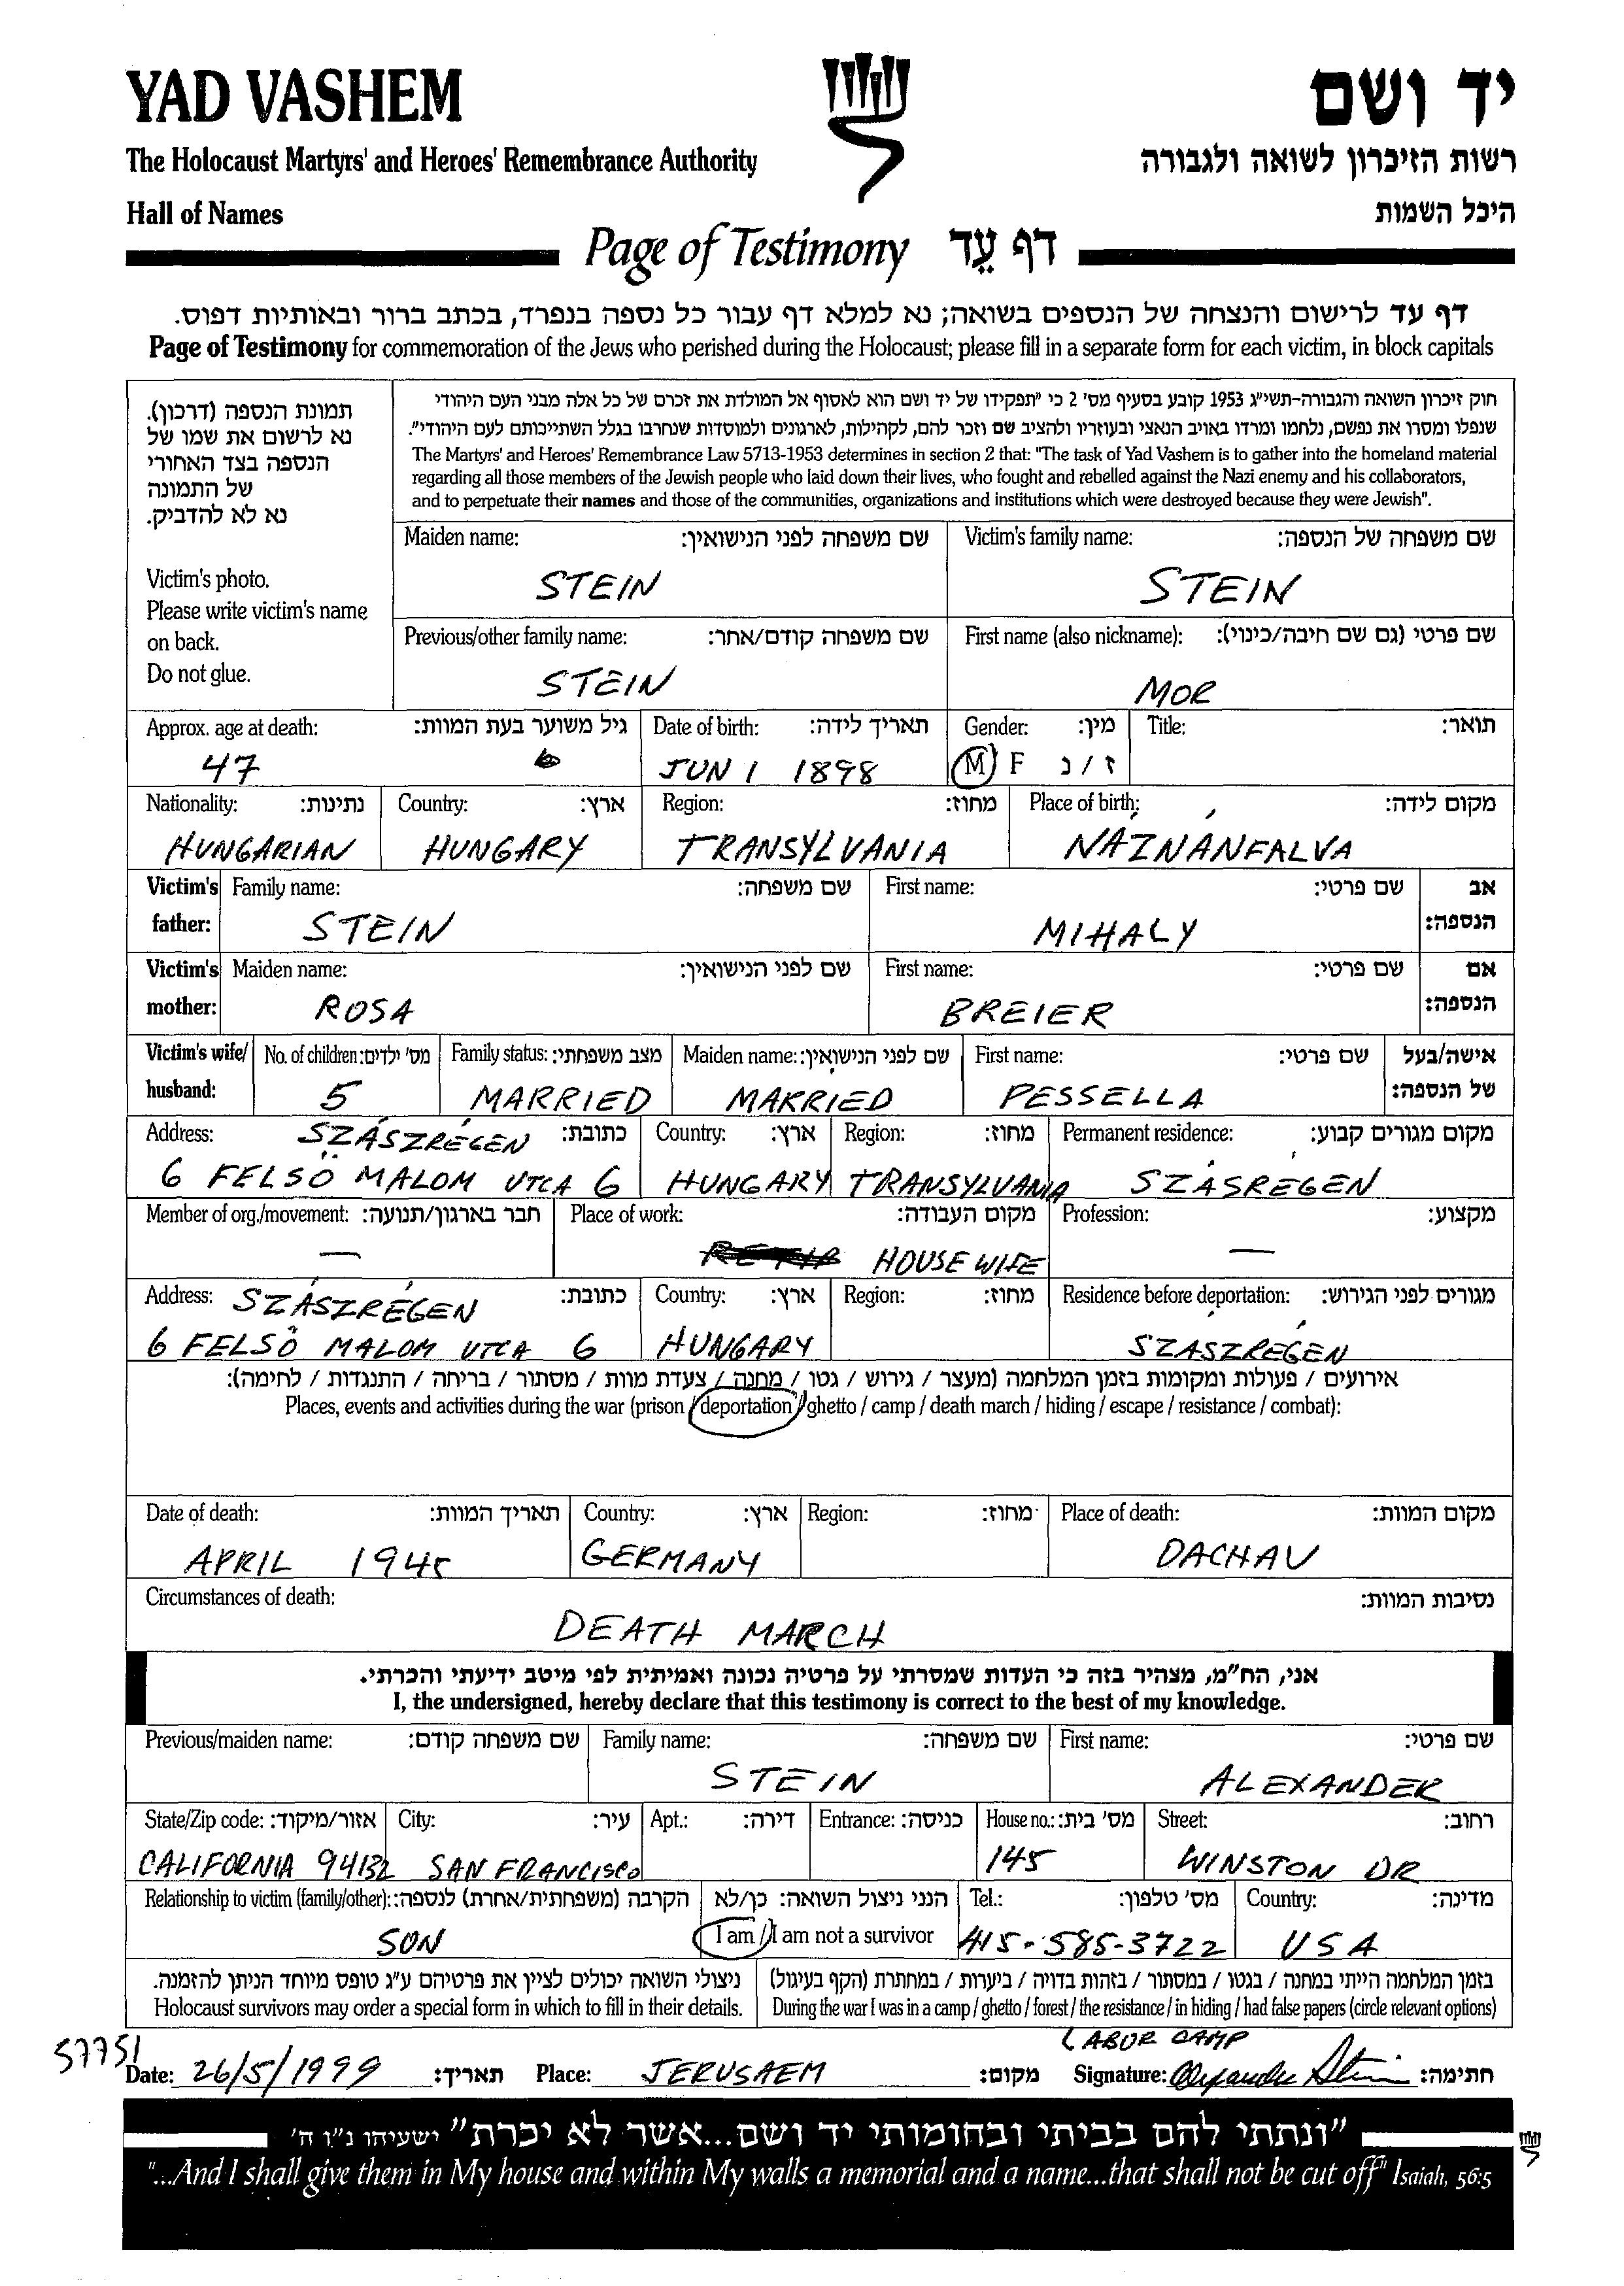 YAD VASHEM יד ושם
The Holocaust Martyrs' and Heroes' Remembrance Authority רשות הזיכרון לשואה ולגבורה
Hall of Names היכל השמות
Page of Testimony דף עֵד
דף עד לרישום והנצחה של הנספים בשואה; נא למלא דף עבור כל נספה בנפרד, בכתב ברור ובאותיות דפוס.
Page of Testimony for commemoration of the Jews who perished during the Holocaust; please fill in a separate form for each victim, in block capitals
תמונת הנספה (דרכון).
נא לרשום את שמו של
הנספה בצד האחורי
של התמונה
נא לא להדביק.
Victim's photo.
Please write victim's name
on back.
Do not glue.
חוק זיכרון השואה והגבורה-תשי״ג 1953 קובע בסעיף מס' 2 כי "תפקידו של יד ושם הוא לאסוף אל המולדת את זכרם של כל אלה מבני העם היהודי
שנפלו ומסרו את נפשם, נלחמו ומרדו באויב הנאצי ובעוזריו ולהציב שם וזכר להם, לקהילות, לארגונים ולמוסדות שנחרבו בגלל השתייכותם לעם היהודי".
The Martyrs' and Heroes' Remembrance Law 5713-1953 determines in section 2 that: "The task of Yad Vashem is to gather into the homeland material
regarding all those members of the Jewish people who laid down their lives, who fought and rebelled against the Nazi enemy and his collaborators,
and to perpetuate their names and those of the communities, organizations and institutions which were destroyed because they were Jewish".
Maiden name: שם משפחה לפני הנישואין: Victim's family name: שם משפחה של הנספה:
STEIN STEIN
Previous/other family name: שם משפחה קודם/אחר: First name (also nickname): שם פרטי (גם שם חיבה/כינוי):
STEIN MOR
Approx. age at death: גיל משוער בעת המוות: Date of birth: תאריך לידה: Gender: מין: Title: תואר:
47 JUN 1 1898 M F ז / נ
Nationality: נתינות: Country: ארץ: Region: מחוז: Place of birth: מקום לידה:
HUNGARIAN HUNGARY TRANSYLVANIA NÁZNÁNFALVA
Victim's Family name: שם משפחה: First name: שם פרטי: אב
father: STEIN MIHALY הנספה:
Victim's Maiden name: שם לפני הנישואין: First name: שם פרטי: אם
mother: ROSA BREIER הנספה:
Victim's wife/ No. of children: מס' ילדים: Family status: מצב משפחתי: Maiden name: שם לפני הנישואין: First name: שם פרטי: אישה/בעל
husband: 5 MARRIED MARRIED PESSELLA של הנספה:
Address: SZÁSZRÉGEN כתובת: Country: ארץ: Region: מחוז: Permanent residence: מקום מגורים קבוע:
6 FELSÖ MALOM UTCA 6 HUNGARY TRANSYLVANIA SZÁSREGÉN
Member of org./movement: חבר בארגון/תנועה: Place of work: מקום העבודה: Profession: מקצוע:
— HOUSE WIFE —
Address: SZÁSZRÉGEN כתובת: Country: ארץ: Region: מחוז: Residence before deportation: מגורים לפני הגירוש:
6 FELSŐ MALOM UTCA 6 HUNGARY SZÁSZRÉGEN
אירועים / פעולות ומקומות בזמן המלחמה (מעצר / גירוש / גטו / מחנה / צעדת מוות / מסתור / בריחה / התנגדות / לחימה):
Places, events and activities during the war (prison / deportation / ghetto / camp / death march / hiding / escape / resistance / combat):
Date of death: תאריך המוות: Country: ארץ: Region: מחוז: Place of death: מקום המוות:
APRIL 1945 GERMANY DACHAU
Circumstances of death: נסיבות המוות:
DEATH MARCH
אני, הח״מ, מצהיר בזה כי העדות שמסרתי על פרטיה נכונה ואמיתית לפי מיטב ידיעתי והכרתי.
I, the undersigned, hereby declare that this testimony is correct to the best of my knowledge.
Previous/maiden name: שם משפחה קודם: Family name: שם משפחה: First name: שם פרטי:
STEIN ALEXANDER
State/Zip code: אזור/מיקוד: City: עיר: Apt.: דירה: Entrance: כניסה: House no.: מס' בית: Street: רחוב:
CALIFORNIA 94132 SAN FRANCISCO 145 WINSTON DR
Relationship to victim (family/other): הקרבה (משפחתית/אחרת) לנספה: הנני ניצול השואה: כן/לא Tel.: מס' טלפון: Country: מדינה:
SON I am / I am not a survivor 415-585-3722 USA
ניצולי השואה יכולים לציין את פרטיהם ע״ג טופס מיוחד הניתן להזמנה. בזמן המלחמה הייתי במחנה / בגטו / במסתור / בזהות בדויה / ביערות / במחתרת (הקף בעיגול)
Holocaust survivors may order a special form in which to fill in their details. During the war I was in a camp / ghetto / forest / the resistance / in hiding / had false papers (circle relevant options)
LABOR CAMP
57751
Date: 26/5/1999 תאריך: Place: JERUSAEM מקום: Signature: Alexander Stein חתימה:
"ונתתי להם בביתי ובחומותי יד ושם...אשר לא יכרת" ישעיהו נ״ו ה'
"...And I shall give them in My house and within My walls a memorial and a name...that shall not be cut off" Isaiah, 56:5